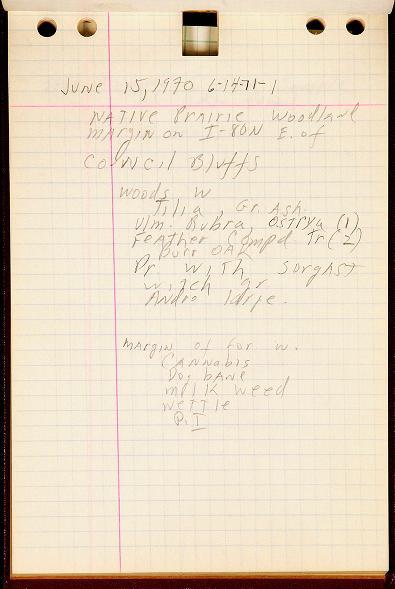 June 15, 1970 6-14-71-1
NATIVE Prairie Woodland
margin on I-80N E. of
Council Bluffs
Woods w
Tilia, Gr. Ash.
Ulm. Rubra, Ostrya (1)
Feather Compd Tr (2)
Burr OAK
Pr with Sorgast
witch gr.
Andro
MARGIN of for w.
CANNABIS
Dog bane
milk weed
nettle
P. I